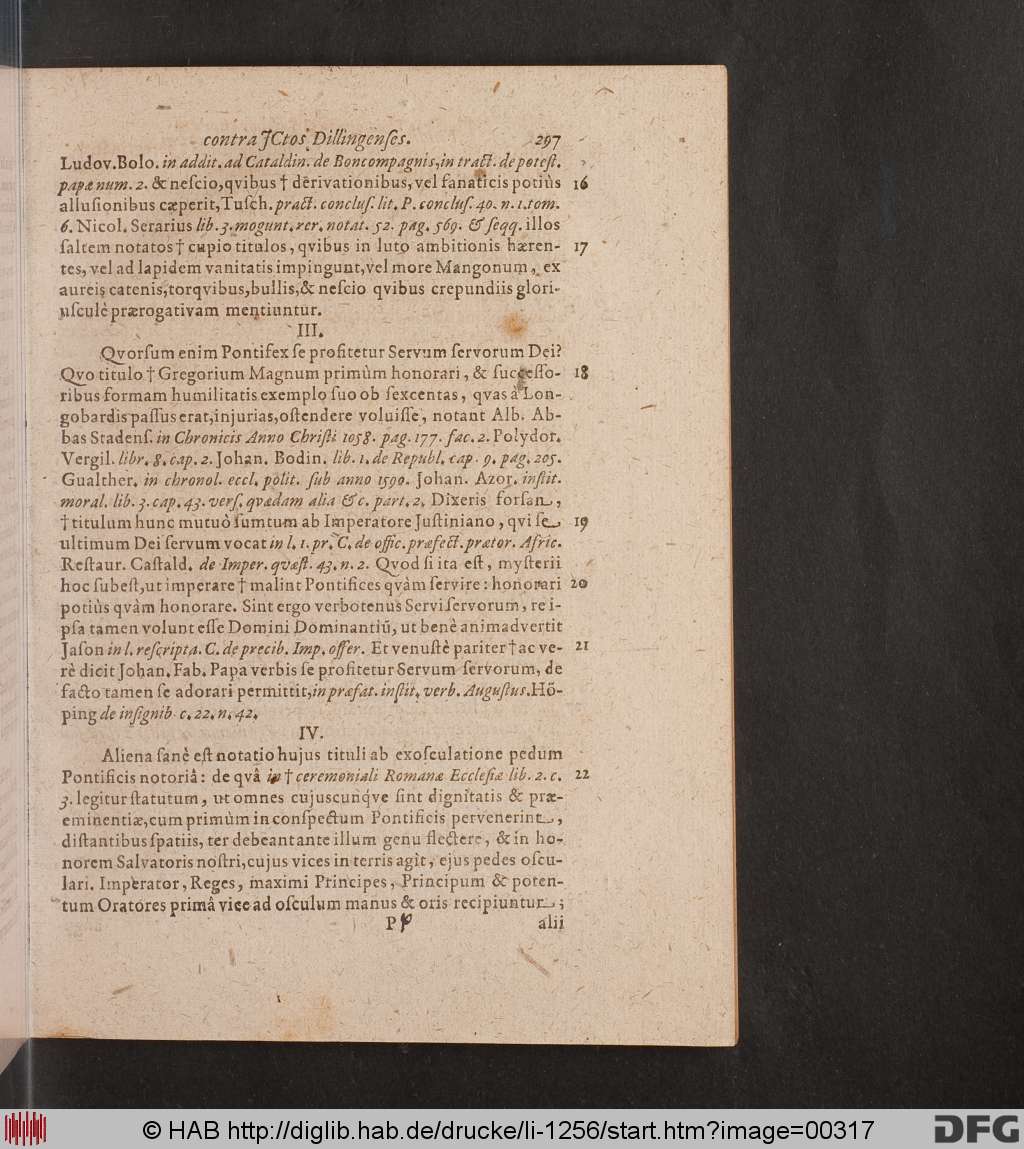 contra JCtos Dillingenſes. 297
Ludov. Bolo. in addit. ad Cataldin. de Boncompagnis, in tract. de poteſt.
papæ num. 2. & neſcio, qvibus † derivationibus, vel fanaticis potiùs 16
alluſionibus cæperit, Tuſch. pract. concluſ. lit. P. concluſ. 40. n. 1. tom.
6. Nicol. Serarius lib. 3. mogunt. rer. notat. 52. pag. 569. & ſeqq. illos
ſaltem notatos † cupio titulos, qvibus in luto ambitionis hæren- 17
tes, vel ad lapidem vanitatis impingunt, vel more Mangonum, ex
aureis catenis, torqvibus, bullis, & neſcio qvibus crepundiis glori-
uſculè prærogativam mentiuntur.
III.
Qvorſum enim Pontifex ſe profitetur Servum ſervorum Dei?
Qvo titulo † Gregorium Magnum primùm honorari, & ſucceſſo- 18
ribus formam humilitatis exemplo ſuo ob ſexcentas, qvas à Lon-
gobardis paſſus erat, injurias, oſtendere voluiſſe, notant Alb. Ab-
bas Stadenſ. in Chronicis Anno Chriſti 1058. pag. 177. fac. 2. Polydor.
Vergil. libr. 8. cap. 2. Johan. Bodin. lib. 1. de Republ. cap. 9. pag. 205.
Gualther. in chronol. eccl. polit. ſub anno 1590. Johan. Azor. inſtit.
moral. lib. 3. cap. 43. verſ. qvædam alia &c. part. 2. Dixeris forſan,
† titulum hunc mutuò ſumtum ab Imperatore Juſtiniano, qvi ſe 19
ultimum Dei ſervum vocat in l. 1. pr. C. de offic. præfect. prætor. Afric.
Reſtaur. Caſtald. de Imper. qvæſt. 43. n. 2. Qvod ſi ita eſt, myſterii
hoc ſubeſt, ut imperare † malint Pontifices qvàm ſervire: honorari 20
potiùs qvàm honorare. Sint ergo verbotenus Servi ſervorum, re i-
pſa tamen volunt eſſe Domini Dominantiũ, ut benè animadvertit
Jaſon in l. reſcripta. C. de precib. Imp. offer. Et venuſtè pariter † ac ve- 21
rè dicit Johan. Fab. Papa verbis ſe profitetur Servum ſervorum, de
facto tamen ſe adorari permittit, in præfat. inſtit. verb. Auguſtus. Hö-
ping de inſignib. c. 22. n. 42.
IV.
Aliena ſanè eſt notatio hujus tituli ab exoſculatione pedum
Pontificis notoriâ: de qvâ in † ceremoniali Romanæ Eccleſiæ lib. 2. c. 22
3. legitur ſtatutum, ut omnes cujuscunqve ſint dignitatis & præ-
eminentiæ, cum primùm in conſpectum Pontificis pervenerint,
diſtantibus ſpatiis, ter debeant ante illum genu flectere, & in ho-
norem Salvatoris noſtri, cujus vices in terris agit, ejus pedes oſcu-
lari. Imperator, Reges, maximi Principes, Principum & poten-
tum Oratores primâ vice ad oſculum manus & oris recipiuntur;
alii
© HAB http://diglib.hab.de/drucke/li-1256/start.htm?image=00317
DFG